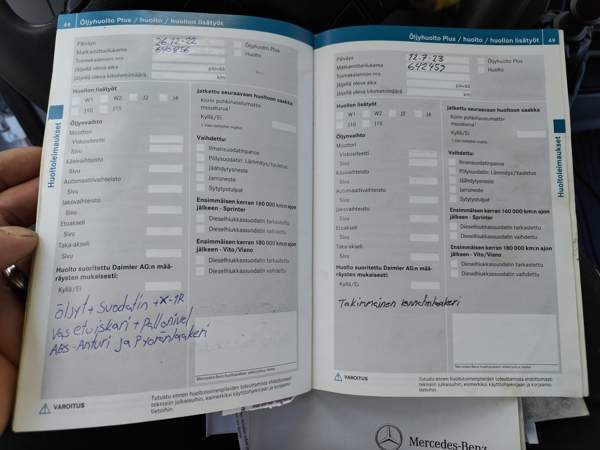 48 Öljyhuolto Plus / huolto / huollon lisätyöt
Päiväys 26.12.22
Matkamittarilukema
Toimeksiannon nro
Jäljellä oleva aika päivää
Jäljellä oleva kilometrimäärä km
Öljyhuolto Plus
Huolto
Huollon lisätyöt
W1 W2 J2 J4
J10 J15
Öljynvaihto
Moottori
Viskositeetti
Sivu
Käsivaihteisto
Sivu
Automaattivaihteisto
Sivu
Jakovaihteisto
Sivu
Etuakseli
Sivu
Taka-akseli
Sivu
Huolto suoritettu Daimler AG:n mää-
räysten mukaisesti:
Kyllä/Ei
Jatkettu seuraavaan huoltoon saakka
Korin puhkiruostumatto-
muusturva¹
Kyllä/Ei
Vaihdettu:
Ilmansuodatinpanos
Pölysuodatin: Lämmitys/tuuletus
Jäähdytysneste
Jarruneste
Sytytystulpat
Ensimmäisen kerran 160 000 km:n ajon
jälkeen - Sprinter
Dieselhiukkassuodatin tarkastettu
Dieselhiukkassuodatin vaihdettu
Ensimmäisen kerran 180 000 km:n ajon
jälkeen - Vito/Viano
Dieselhiukkassuodatin tarkastettu
Dieselhiukkassuodatin vaihdettu
Öljyt + Suodatin +
Vas etu iskari + Pallonivel
ABS-Anturi ja Pyöränlaakeri
VAROITUS
Tutustu ennen huoltotoimenpiteiden toteuttamista ehdottomasti
teknisiin julkaisuihin, esimerkiksi käyttöohjekirjaan ja korjaamo-
tietoihin.
Huoltoleimaukset
Öljyhuolto Plus / huolto / huollon lisätyöt 49
Päiväys 12.7.23
Matkamittarilukema 642453
Toimeksiannon nro
Jäljellä oleva aika päivää
Jäljellä oleva kilometrimäärä km
Öljyhuolto Plus
Huolto
Huollon lisätyöt
W1 W2 J2 J4
J10 J15
Öljynvaihto
Moottori
Viskositeetti
Sivu
Käsivaihteisto
Sivu
Automaattivaihteisto
Sivu
Jakovaihteisto
Sivu
Etuakseli
Sivu
Taka-akseli
Sivu
Huolto suoritettu Daimler AG:n mää-
räysten mukaisesti:
Kyllä/Ei
Jatkettu seuraavaan huoltoon saakka
Korin puhkiruostumatto-
muusturva¹
Kyllä/Ei
Vaihdettu:
Ilmansuodatinpanos
Pölysuodatin: Lämmitys/tuuletus
Jäähdytysneste
Jarruneste
Sytytystulpat
Ensimmäisen kerran 160 000 km:n ajon
jälkeen - Sprinter
Dieselhiukkassuodatin tarkastettu
Dieselhiukkassuodatin vaihdettu
Ensimmäisen kerran 180 000 km:n ajon
jälkeen - Vito/Viano
Dieselhiukkassuodatin tarkastettu
Dieselhiukkassuodatin vaihdettu
Takimmainen
VAROITUS
Tutustu ennen huoltotoimenpiteiden toteuttamista ehdottomasti
teknisiin julkaisuihin, esimerkiksi käyttöohjekirjaan ja korjaamo-
tietoihin.
Huoltoleimaukset
Mercedes-Benz